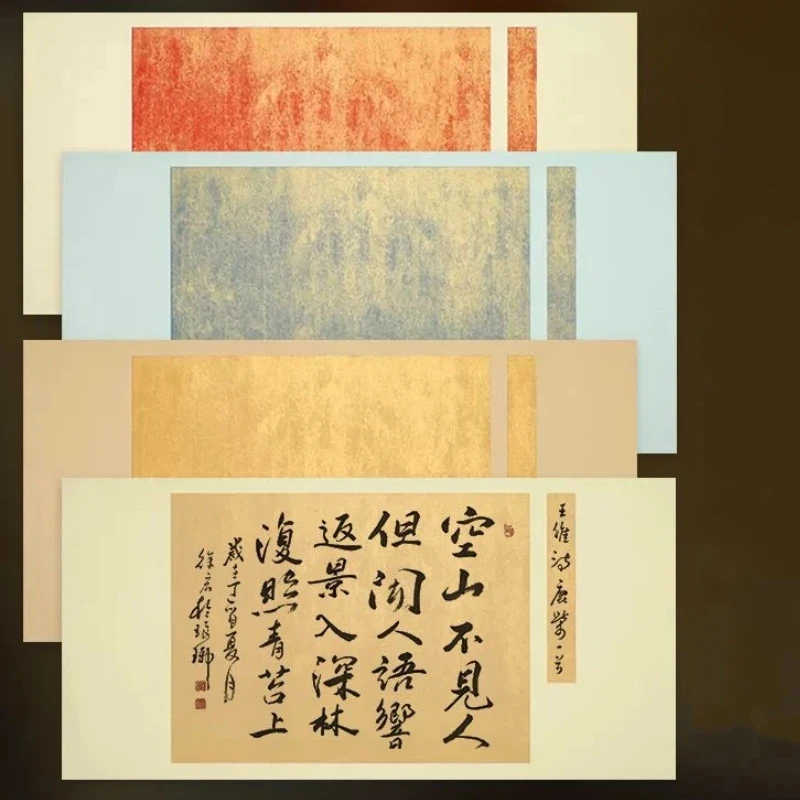 王維詩鹿柴一首
空山不見人
但聞人語響
返景入深林
復照青苔上
歲在丁酉夏月
徐